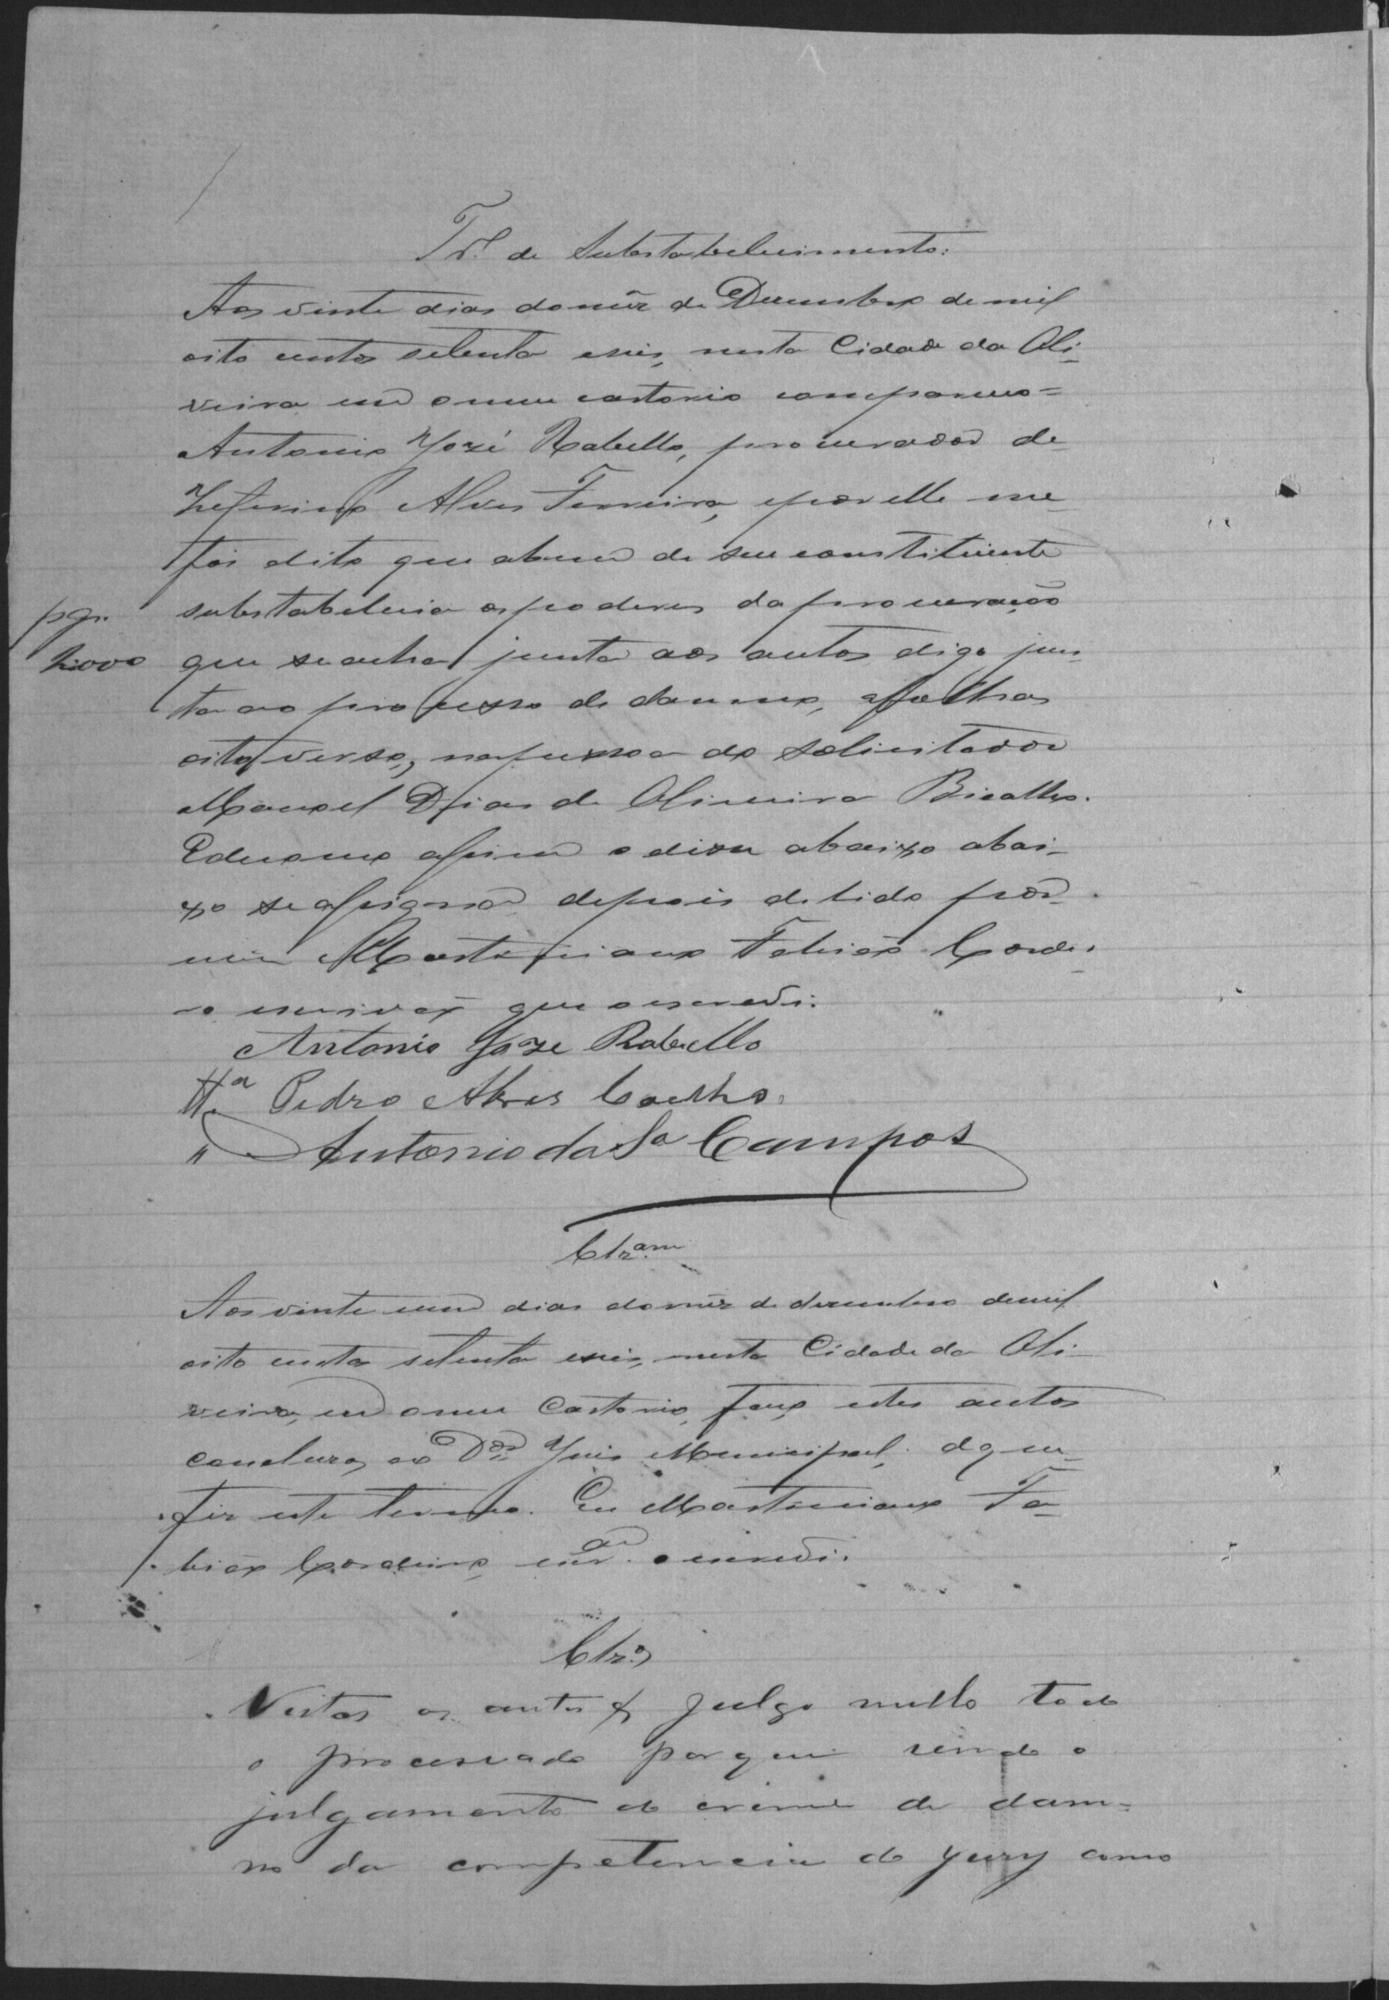 Tr.º de Substabelecimento.
Aos vinte dias do mez de Dezembro de mil
oito centos setenta e seis, nesta Cidade da Oli-
veira em o meu cartorio compareceo=
Antonio Jozé Rabello, procurador de
Zeferino Alves Ferreira, e por elle me
foi dito que a bem de seu constituinte
substabelecia os poderes da procuração
pg.
que se acha junta aos autos digo jun-
ta ao processo de damno, a folhas
oito verso, na pessoa do Solicitador
Manoel Dias de Oliveira Bicalho.
E de como assim o disse abaixo abai-
xo se assignou depois de lido por
mim Martiniano Fabião Corde-
ro escrivão que o escrevi.
Antonio Joze Rabello
Tta Pedro Alves Coelho.
" Antonio da Sª Campos
Clz.am
Aos vinte um dias do mez de dezembro de mil
oito centos setenta e seis, nesta Cidade da Oli-
veira, em o meu Cartorio, faço estes autos
concluzos ao Dor. Juis Municipal, do que
fiz este termo. Eu Martiniano Fa-
bião Cordeiro, escram. o escrevi.
Clz.os
Vistos os autos & julgo nullo todo
o processado porque sendo o
julgamento do crime de dam-
no da competencia do jury como